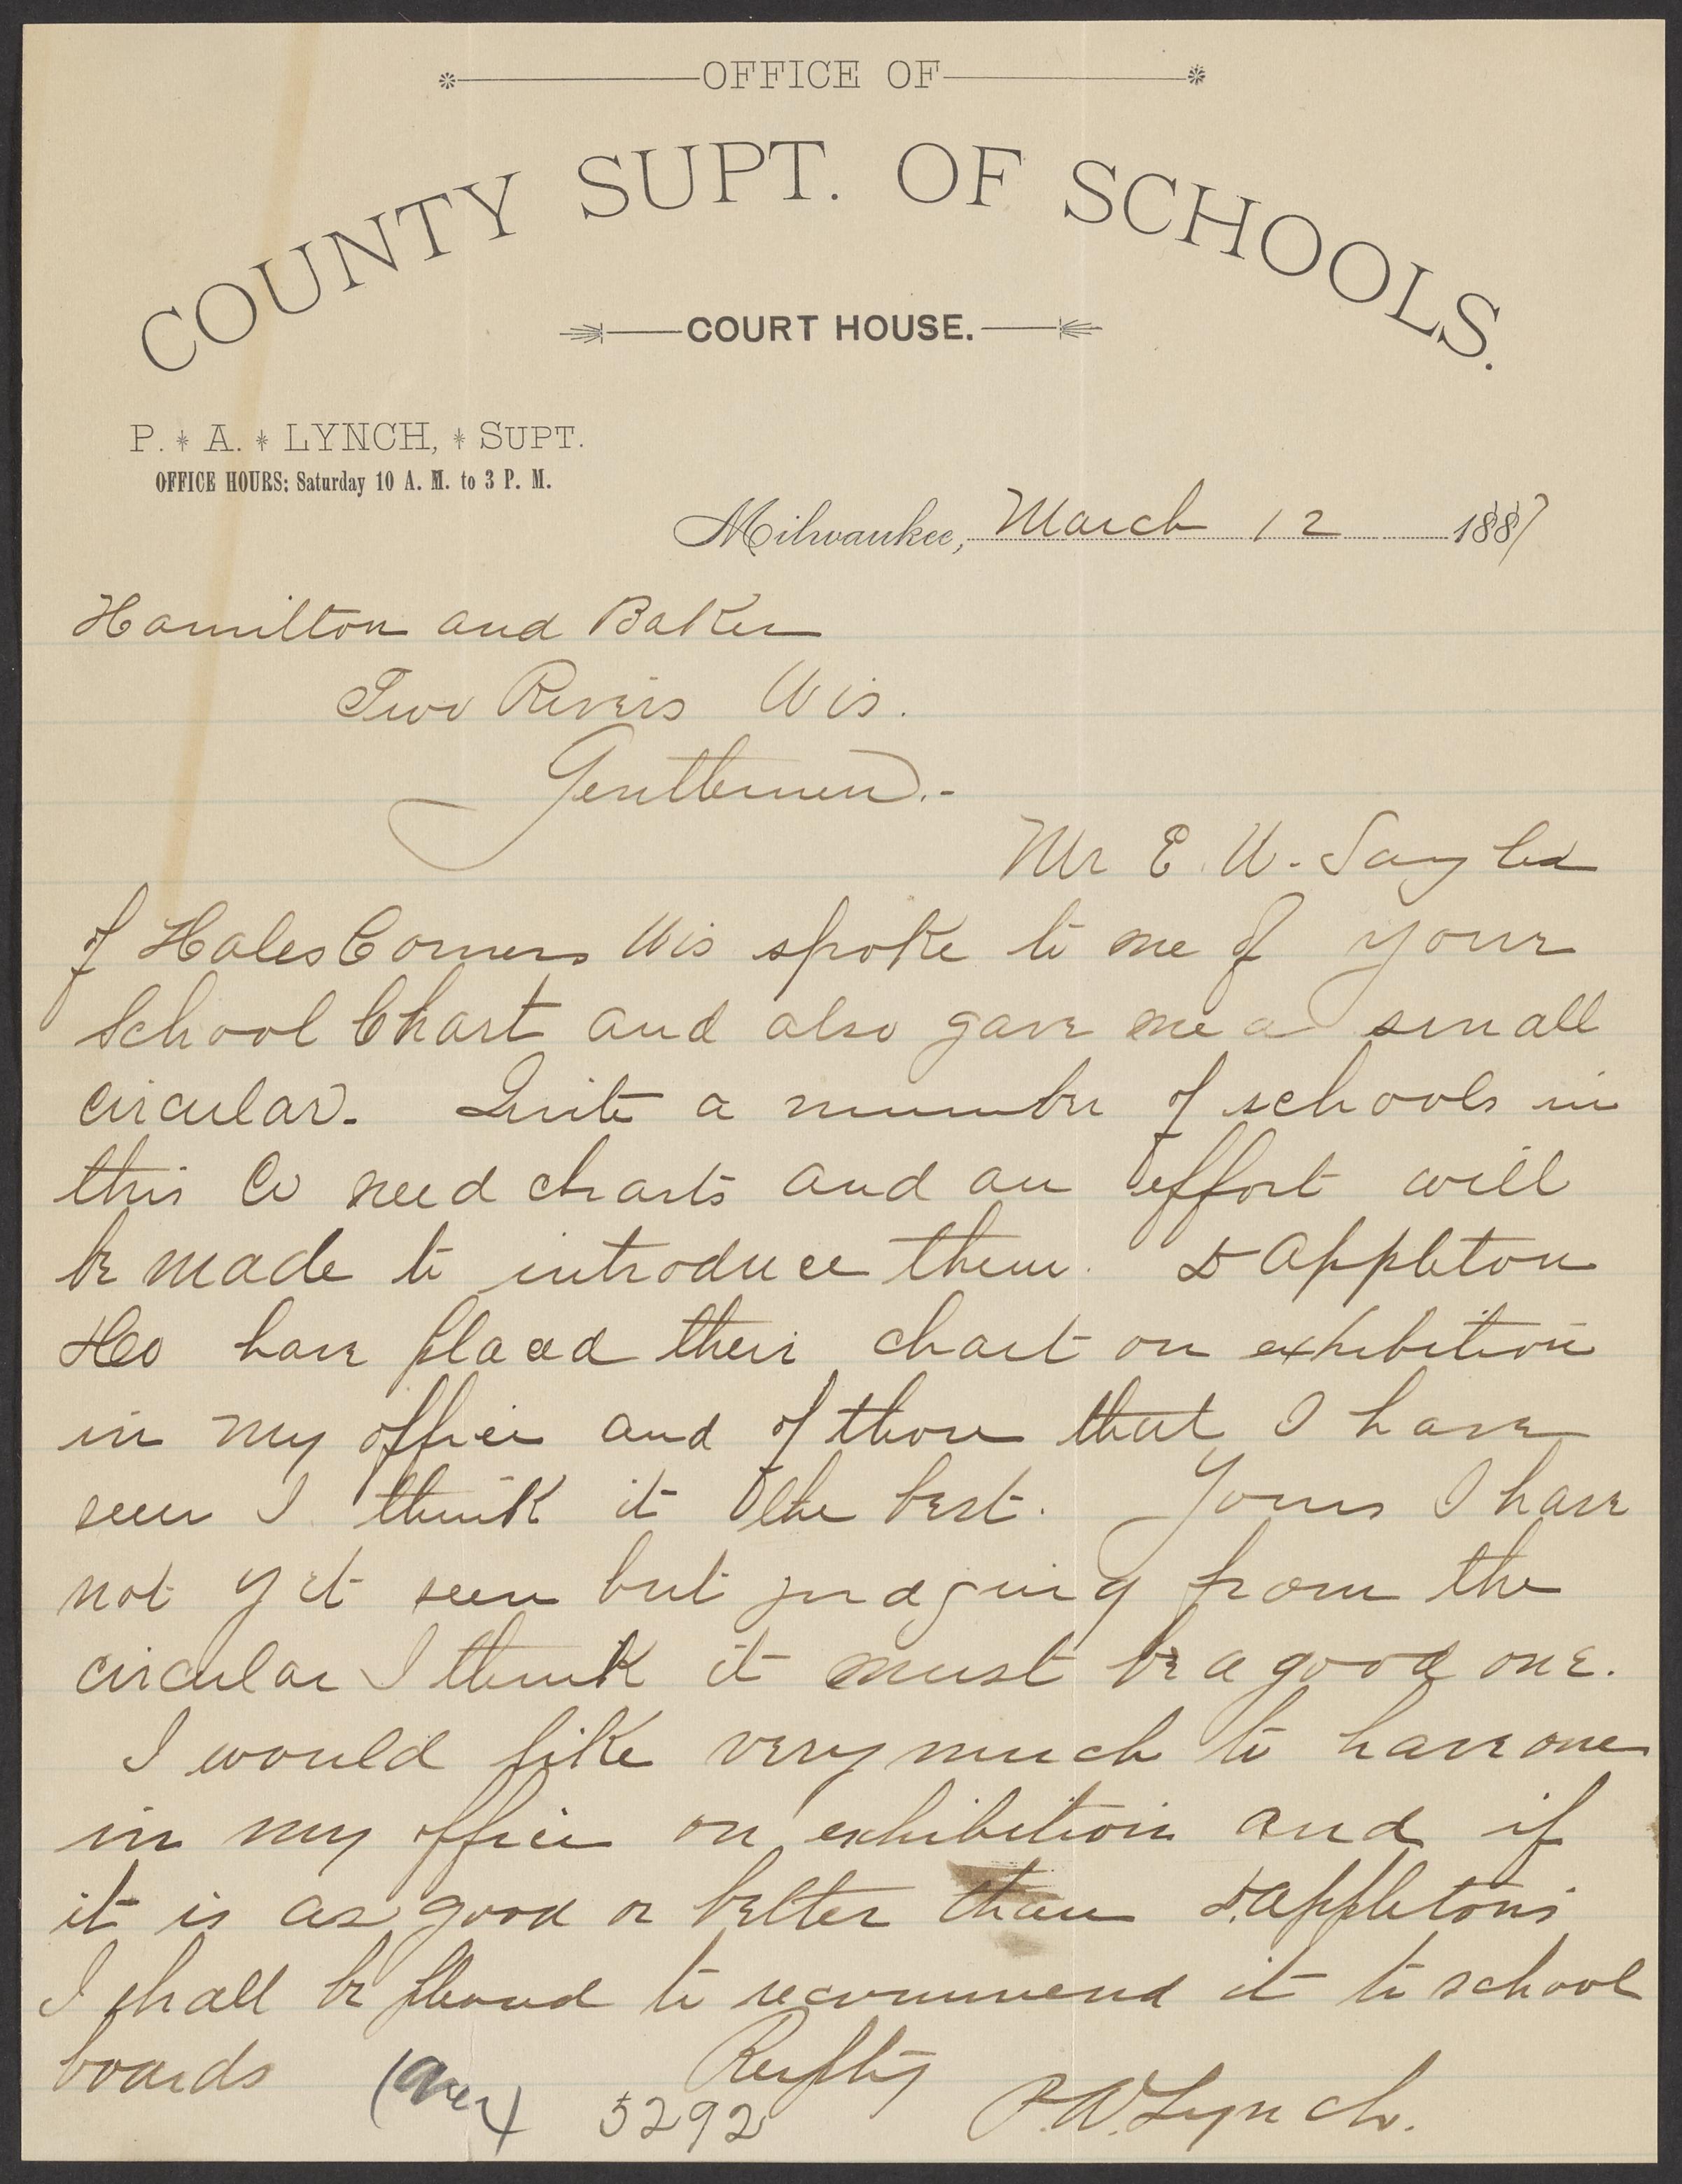 OFFICE OF
COUNTY SUPT. OF SCHOOLS.
COURT HOUSE.
P. A. LYNCH, SUPT.
OFFICE HOURS: Saturday 10 A. M. to 3 P. M.
Milwaukee, March 12 1887
Hamilton and Baker
Two Rivers Wis.
Gentlemen.-
Mr E. W.
of Hales Corners Wis spoke to me of your
School Chart and also gave me a small
circular. Quite a number of schools in
this Co need charts and an effort will
be made to introduce them. D Appleton
&Co have placed their chart on exhibition
in my office and of those that I have
seen I think it the best. Yours I have
not yet seen but judging from the
circular I think it must be a good one.
I would like very much to have one
in my office on exhibition and if
it is as good or better than D. Appletons
I shall be pleased to recommend it to school
boards (Over) Respty
5292 P. A. Lynch.